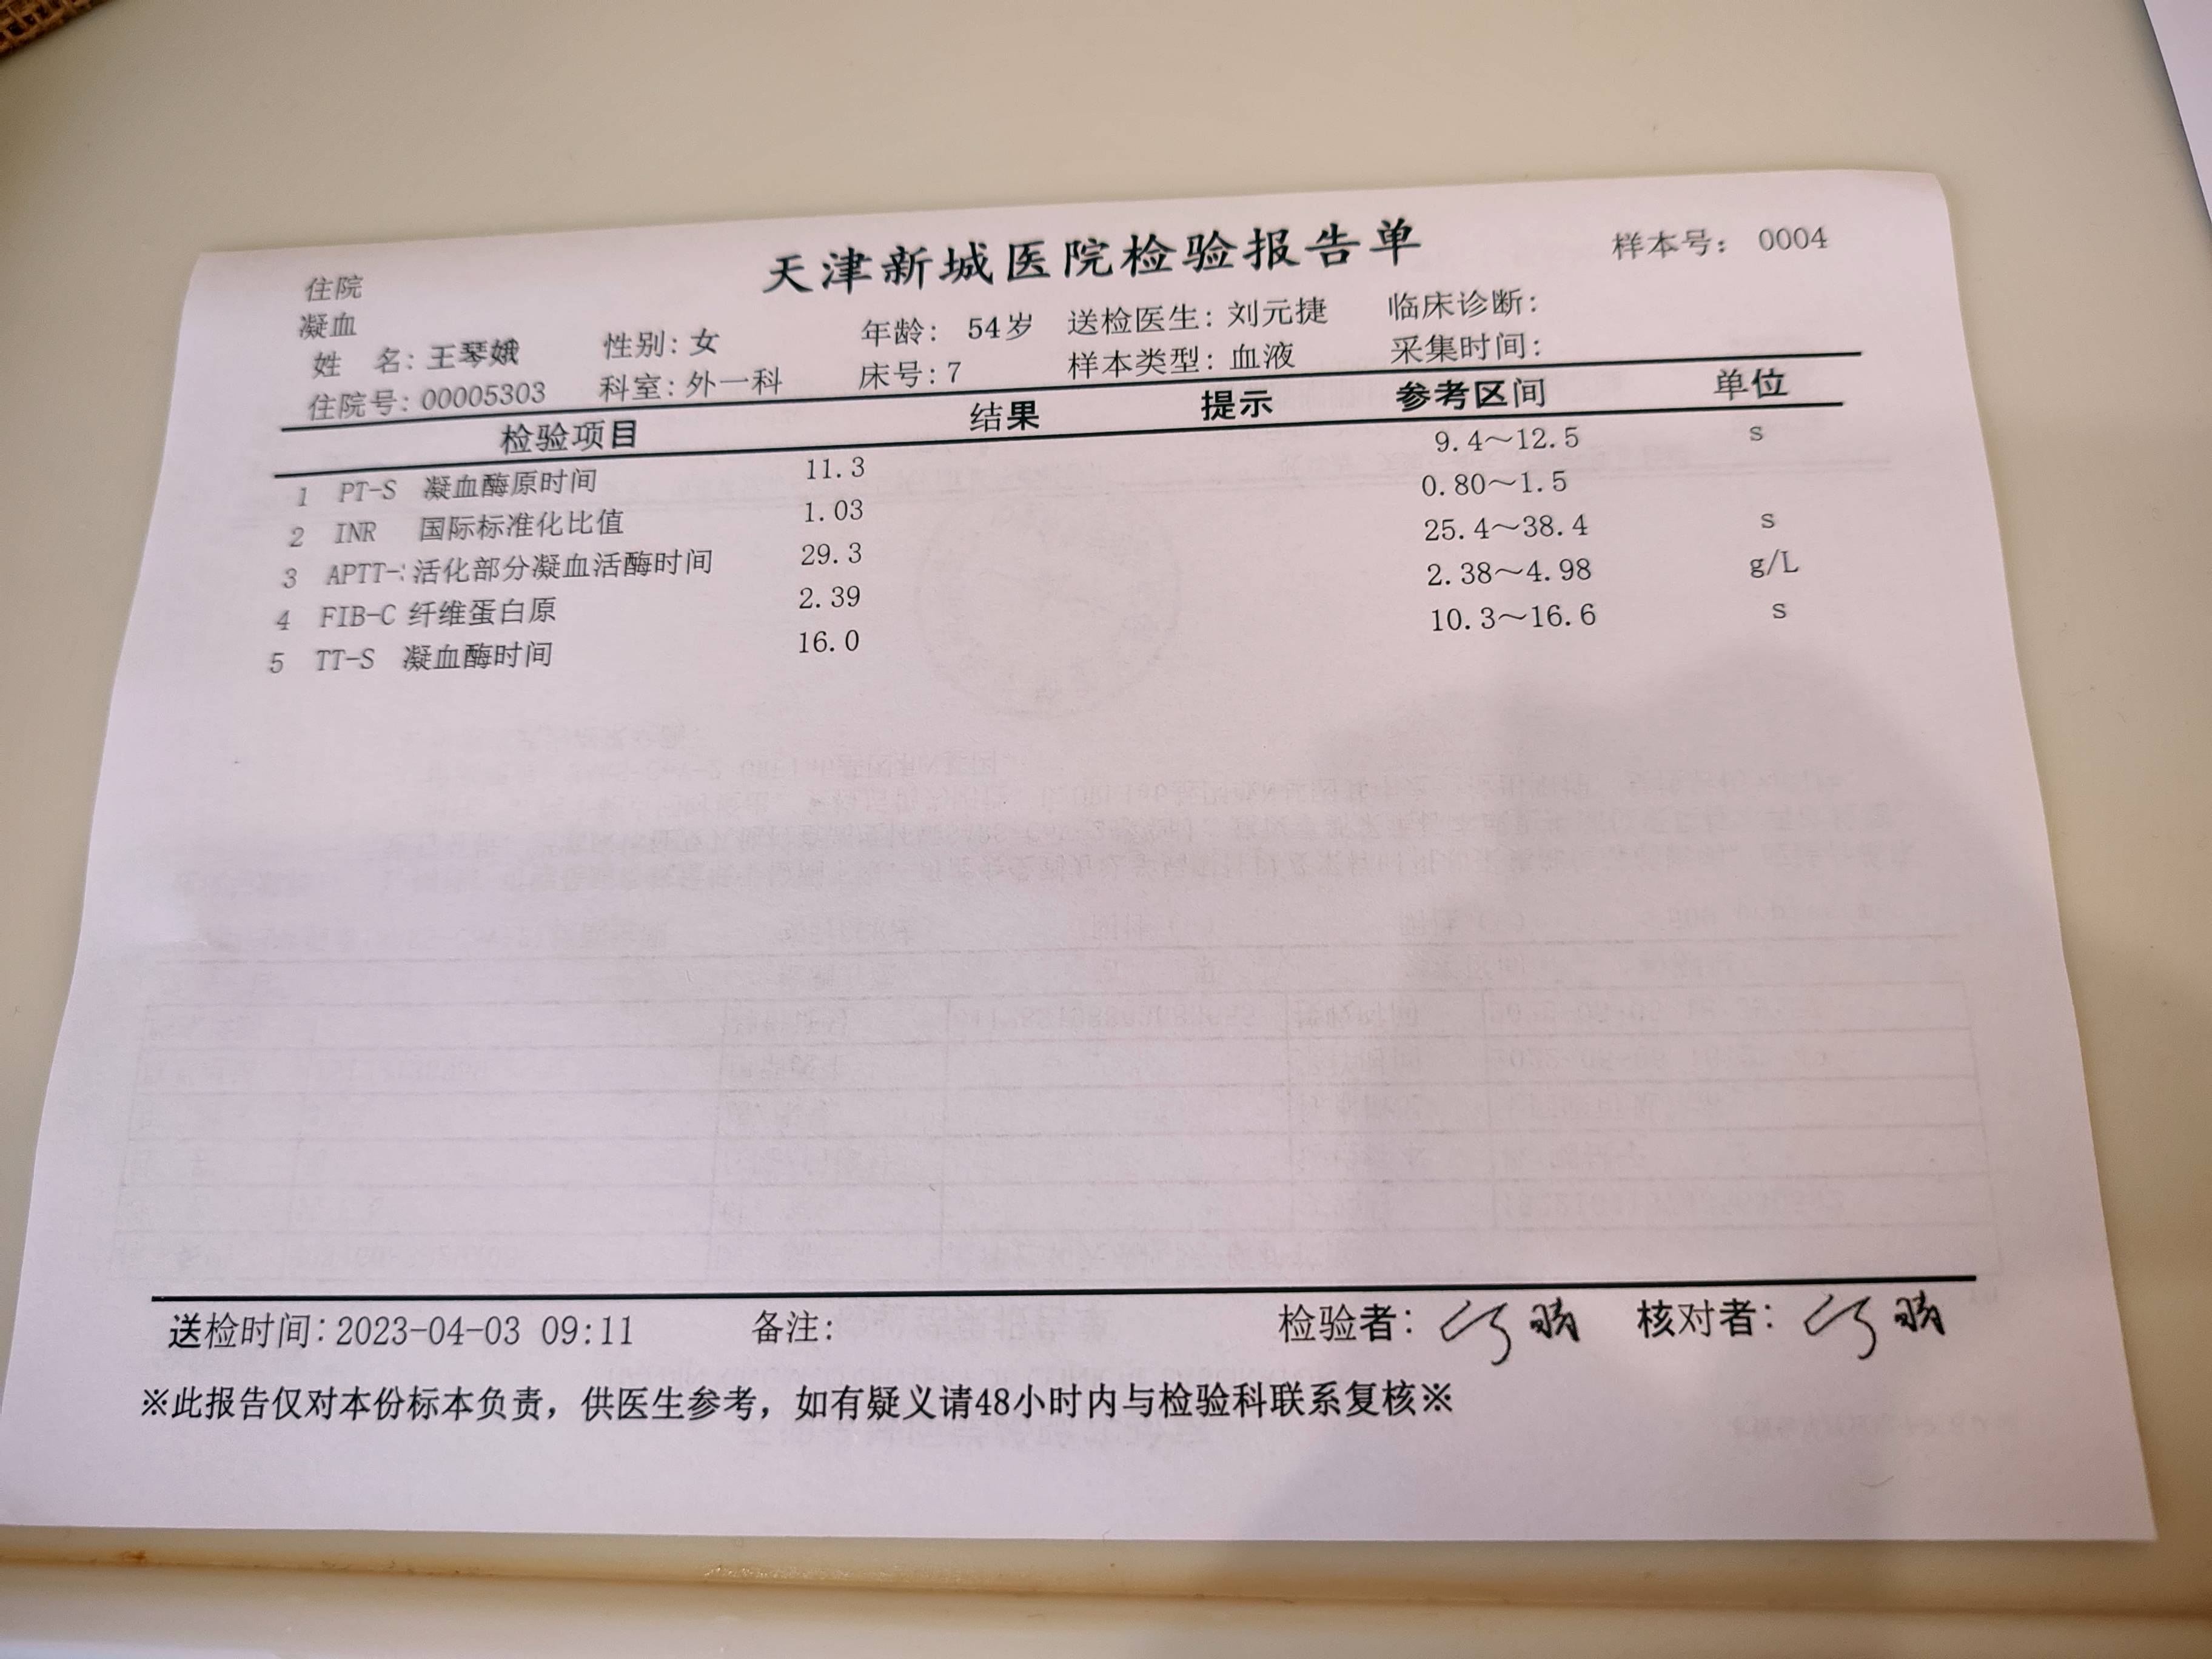 天津新城医院检验报告单
样本号: 0004
住院
凝血
姓 名: 王琴娥 性别: 女 年龄: 54岁 送检医生: 刘元捷 临床诊断:
住院号: 00005303 科室: 外一科 床号: 7 样本类型: 血液 采集时间:
检验项目 结果 提示 参考区间 单位
1 PT-S 凝血酶原时间 11.3 9.4~12.5 s
2 INR 国际标准化比值 1.03 0.80~1.5
3 APTT-: 活化部分凝血活酶时间 29.3 25.4~38.4 s
4 FIB-C 纤维蛋白原 2.39 2.38~4.98 g/L
5 TT-S 凝血酶时间 16.0 10.3~16.6 s
送检时间: 2023-04-03 09:11 备注: 检验者: 核对者:
※此报告仅对本份标本负责，供医生参考，如有疑义请48小时内与检验科联系复核※